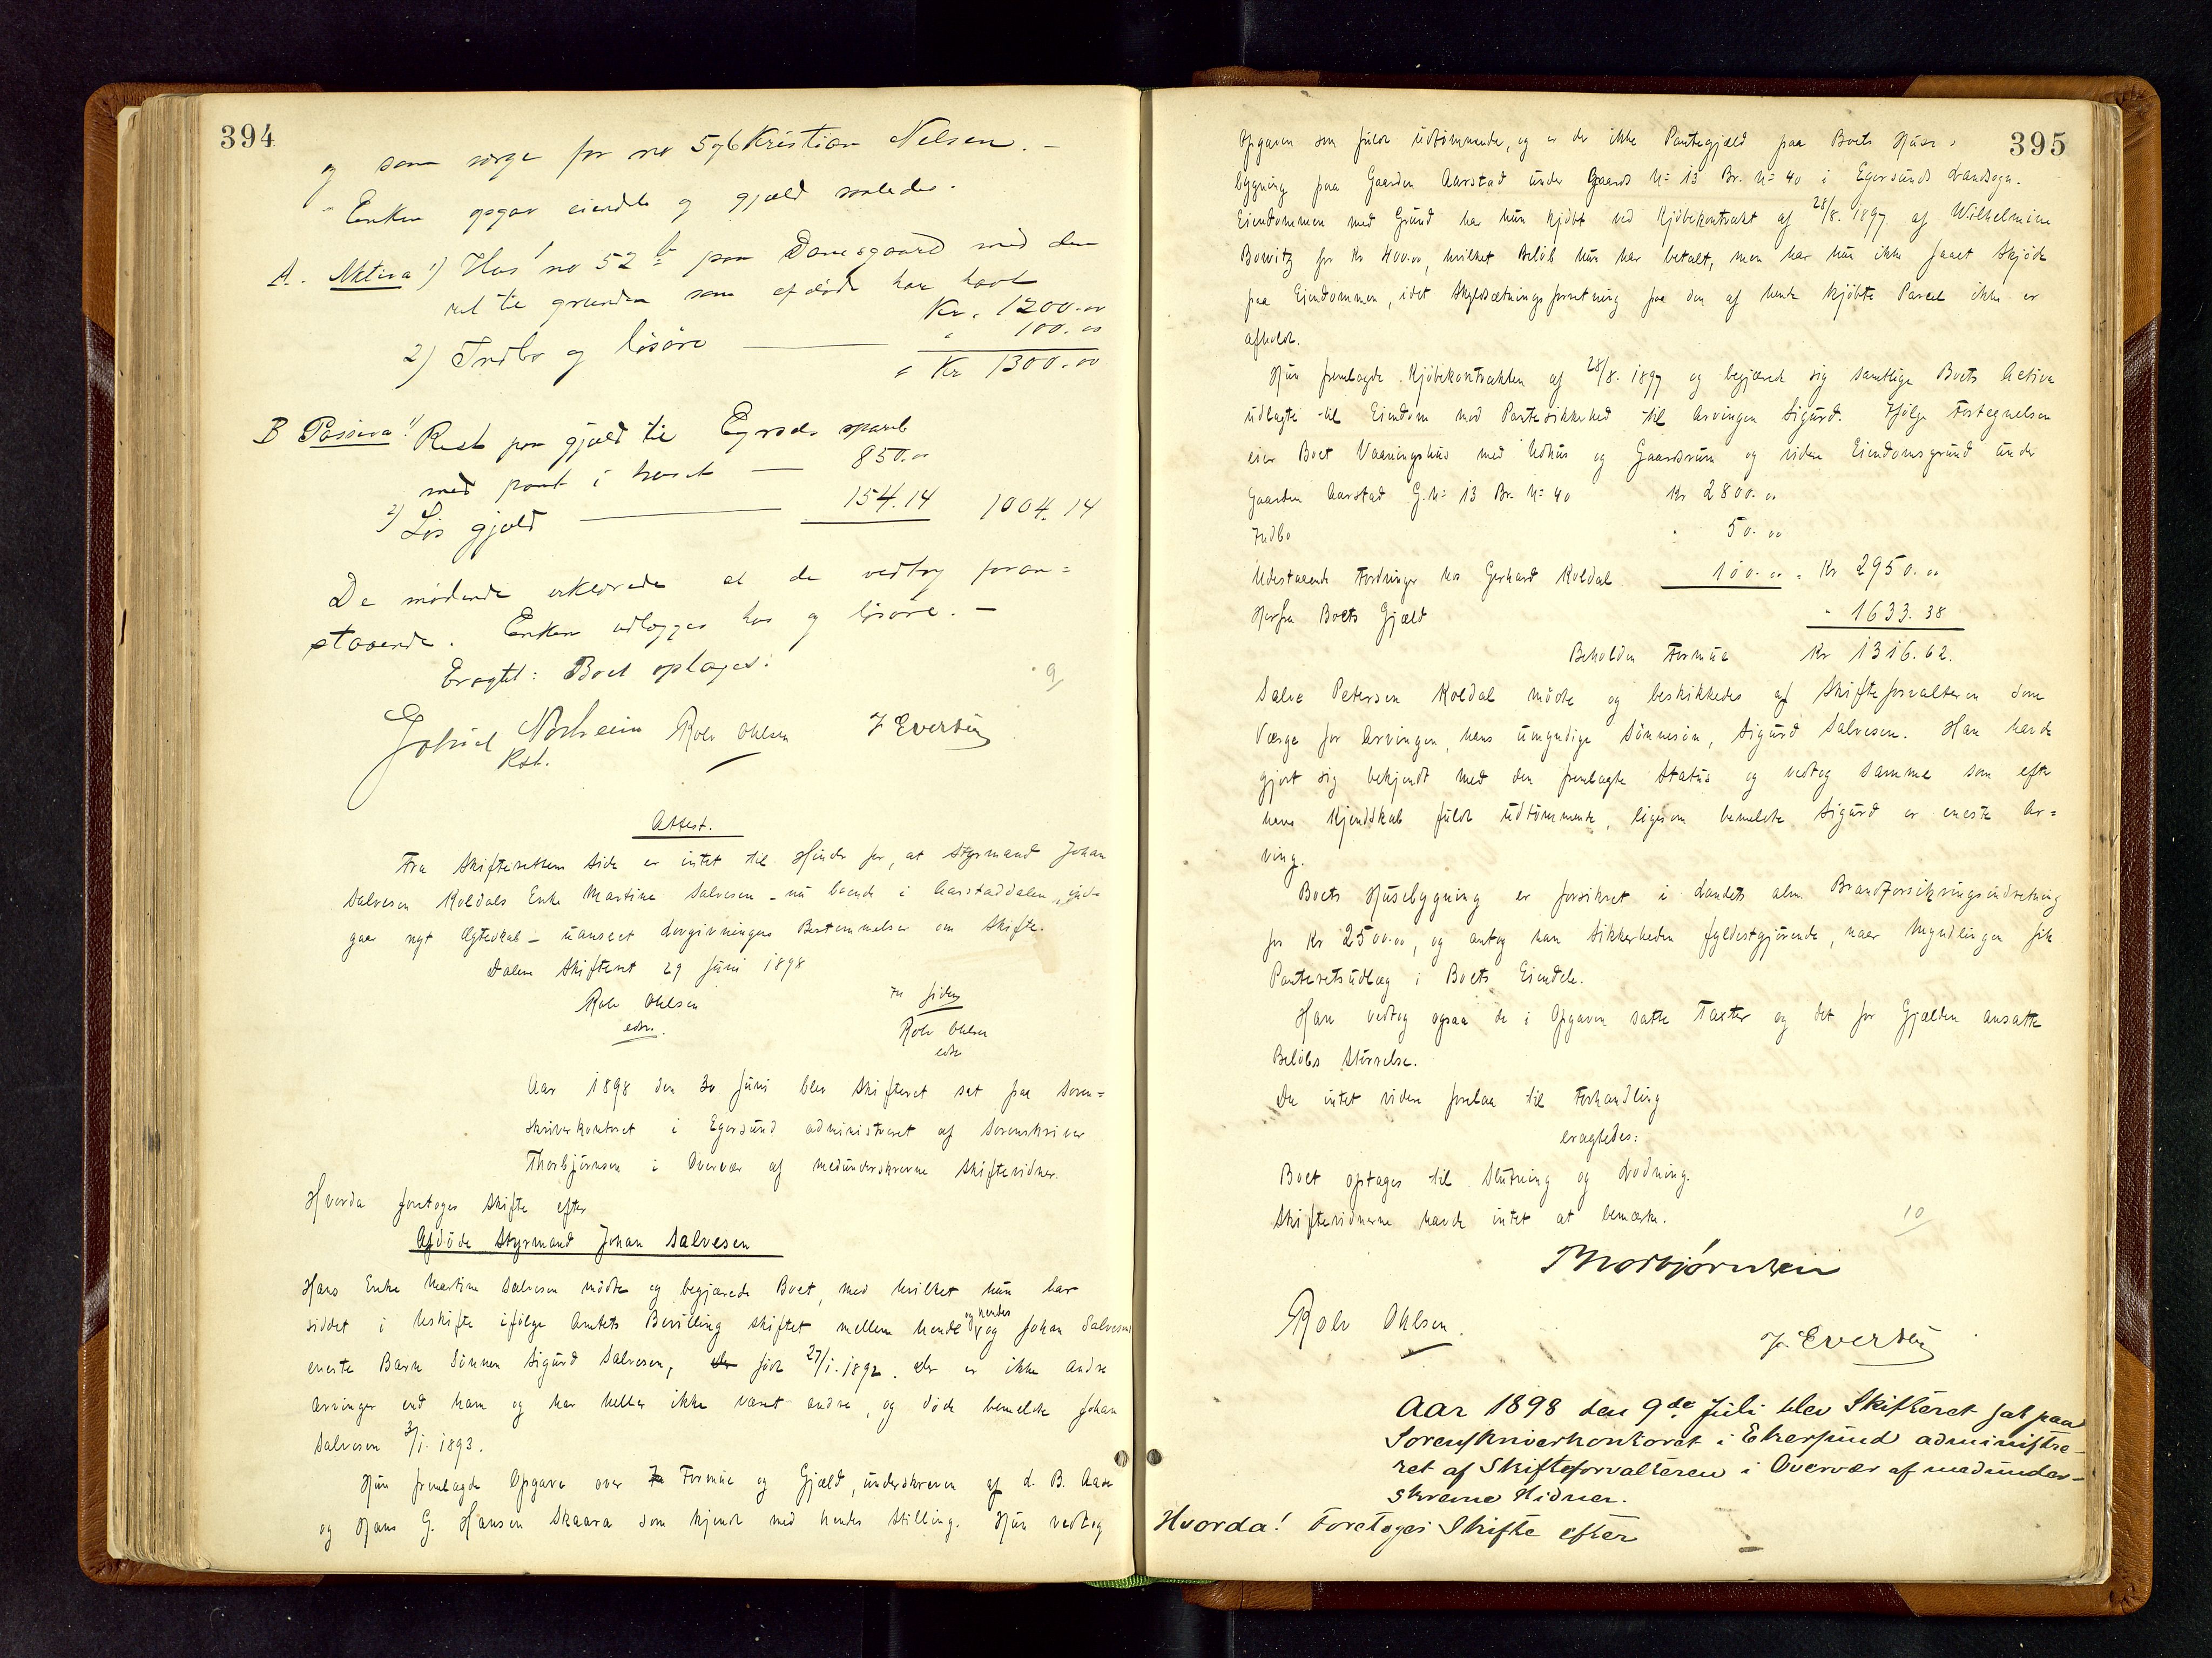 394
og som verge for no 5 og 6 Kristian Nelsen. -
Enken opgav eiendele og gjæld saaledes.
A. Aktiva 1) Hus no 52 b paa Damsgaard med den
ret til grunden som afdøde har havt
Kr. 1200.00
2) Indbo og løsøre 100.00
Kr 1300.00
B Passiva 1) Rest paa gjæld til Egrsds spareb
med pant i huset 850.00
2) Løs gjæld 154.14 1004.14
De mødende erklærede at de vedtog foran=
staaende. Enken udlægges hus og løsøre. -
Eragtet: Boet optages.
9
Gabriel Rolv Ohlsen J Evertsen
Rst.
Attest.
Fra Skifterettens Side er intet til Hinder for, at Styrmand Johan
Salvesen Koldals Enke Martine Salvesen - nu boende i Aarstaddalen, ind-
gaar nyt Ægteskab - uanseet Lovgivningens Bestemmelser om Skifte.
Dalene Skifteret 29 Juni 1898
Rolv Ohlsen
edsv.
Rolv Ohlsen
edsv
Aar 1898 den 30 Juni blev Skifteret sat paa Soren=
skriverkontoret i Egersund administreret af Sorenskriver
Thorbjørnsen i Overvær af medunderskrevne Skiftevidner.
Hvorda foretoges Skifte efter
Afdøde Styrmand Johan Salvesen
Hans Enke Martine Salvesen mødte og begjærede Boet, med hvilket hun har
siddet i Uskifte ifølge Amtets Bevilling skiftet mellem hende og hendes og Johan Salvesens
eneste Barn Sønnen Sigurd Salvesen, født 27/1. 1892. Der er ikke andre
Arvinger end ham og har heller ikke været andre, og døde bemeldte Johan
Salvesen 3/1. 1893.
Hun fremlagde Opgave over Formue og Gjæld, underskreven af L. B. Aase
og Hans G. Hansen Skaara som kjendt med hendes Stilling. Hun vedtog
395
Opgaven som fuldt udtømmende, og er der ikke Pantegjæld paa Boets Huse=
bygning paa Gaarden Aarstad under Gaards No 13 Br. No 40 i Egersunds Landsogn.
Eiendommen med Grund har hun kjøbt ved Kjøbekontrakt af 28/8. 1897 af Wilhelmine
Bowitz for Kr 400.00, hvilket Beløb hun har betalt, men har hun ikke faaet Skjøde
paa Eiendommen, idet Skyldsætningsforretning paa den af hende kjøbte Parcel ikke er
afholdt.
Hun fremlagde Kjøbekontrakten af 28/8. 1897 og begjærede sig samtlige Boets Activa
udlagte til Eiendom mod Pantesikkerhed til Arvingen Sigurd. Ifølge Fortegnelsen
eier Boet Vaaningshus med Udhus og Gaardsrum og videre Eiendomsgrund under
Gaarden Aarstad G. No 13 Br. No 40 Kr 2800.00
Indbo 50.00
Udestaaende Fordringer hos Gerhard Koldal 100.00 Kr 2950.00
Herfra Boets Gjæld 1633.38
Beholden Formue Kr 1316.62.
Salve Petersen Koldal mødte og beskikkedes af Skifteforvalteren som
Værge for Arvingen, hans umyndige Sønnesøn, Sigurd Salvesen. Han havde
gjort sig bekjendt med den fremlagte Status og vedtog samme som efter
hans Kjendskab fuldt udtømmende, ligesom bemeldte Sigurd er eneste Ar=
ving.
Boets Husebygning er forsikret i Landets alm. Brandforsikringsindretning
for Kr 2500.00, og antog han Sikkerheden fyldestgjørende, naar Myndlingen fik
Panteretsudlæg i Boets Eiendele.
Han vedtog ogsaa de i Opgaven satte Taxter og det for Gjælden ansatte
Beløbs Størrelse.
Da intet videre forelaa til Forhandling
eragtedes:
Boet optages til Slutning og Lodning.
Skiftevidnerne havde intet at bemærke.
10
Thorbjørnsen
Rolv Ohlsen. J. Evertsen
Aar 1898 den 9de Juli blev Skifteret sat paa
Sorenskriverkontoret i Ekersund administre-
ret af Skifteforvalteren i Overvær af medunder-
skrevne Vidner.
Hvorda! Foretoges Skifte efter